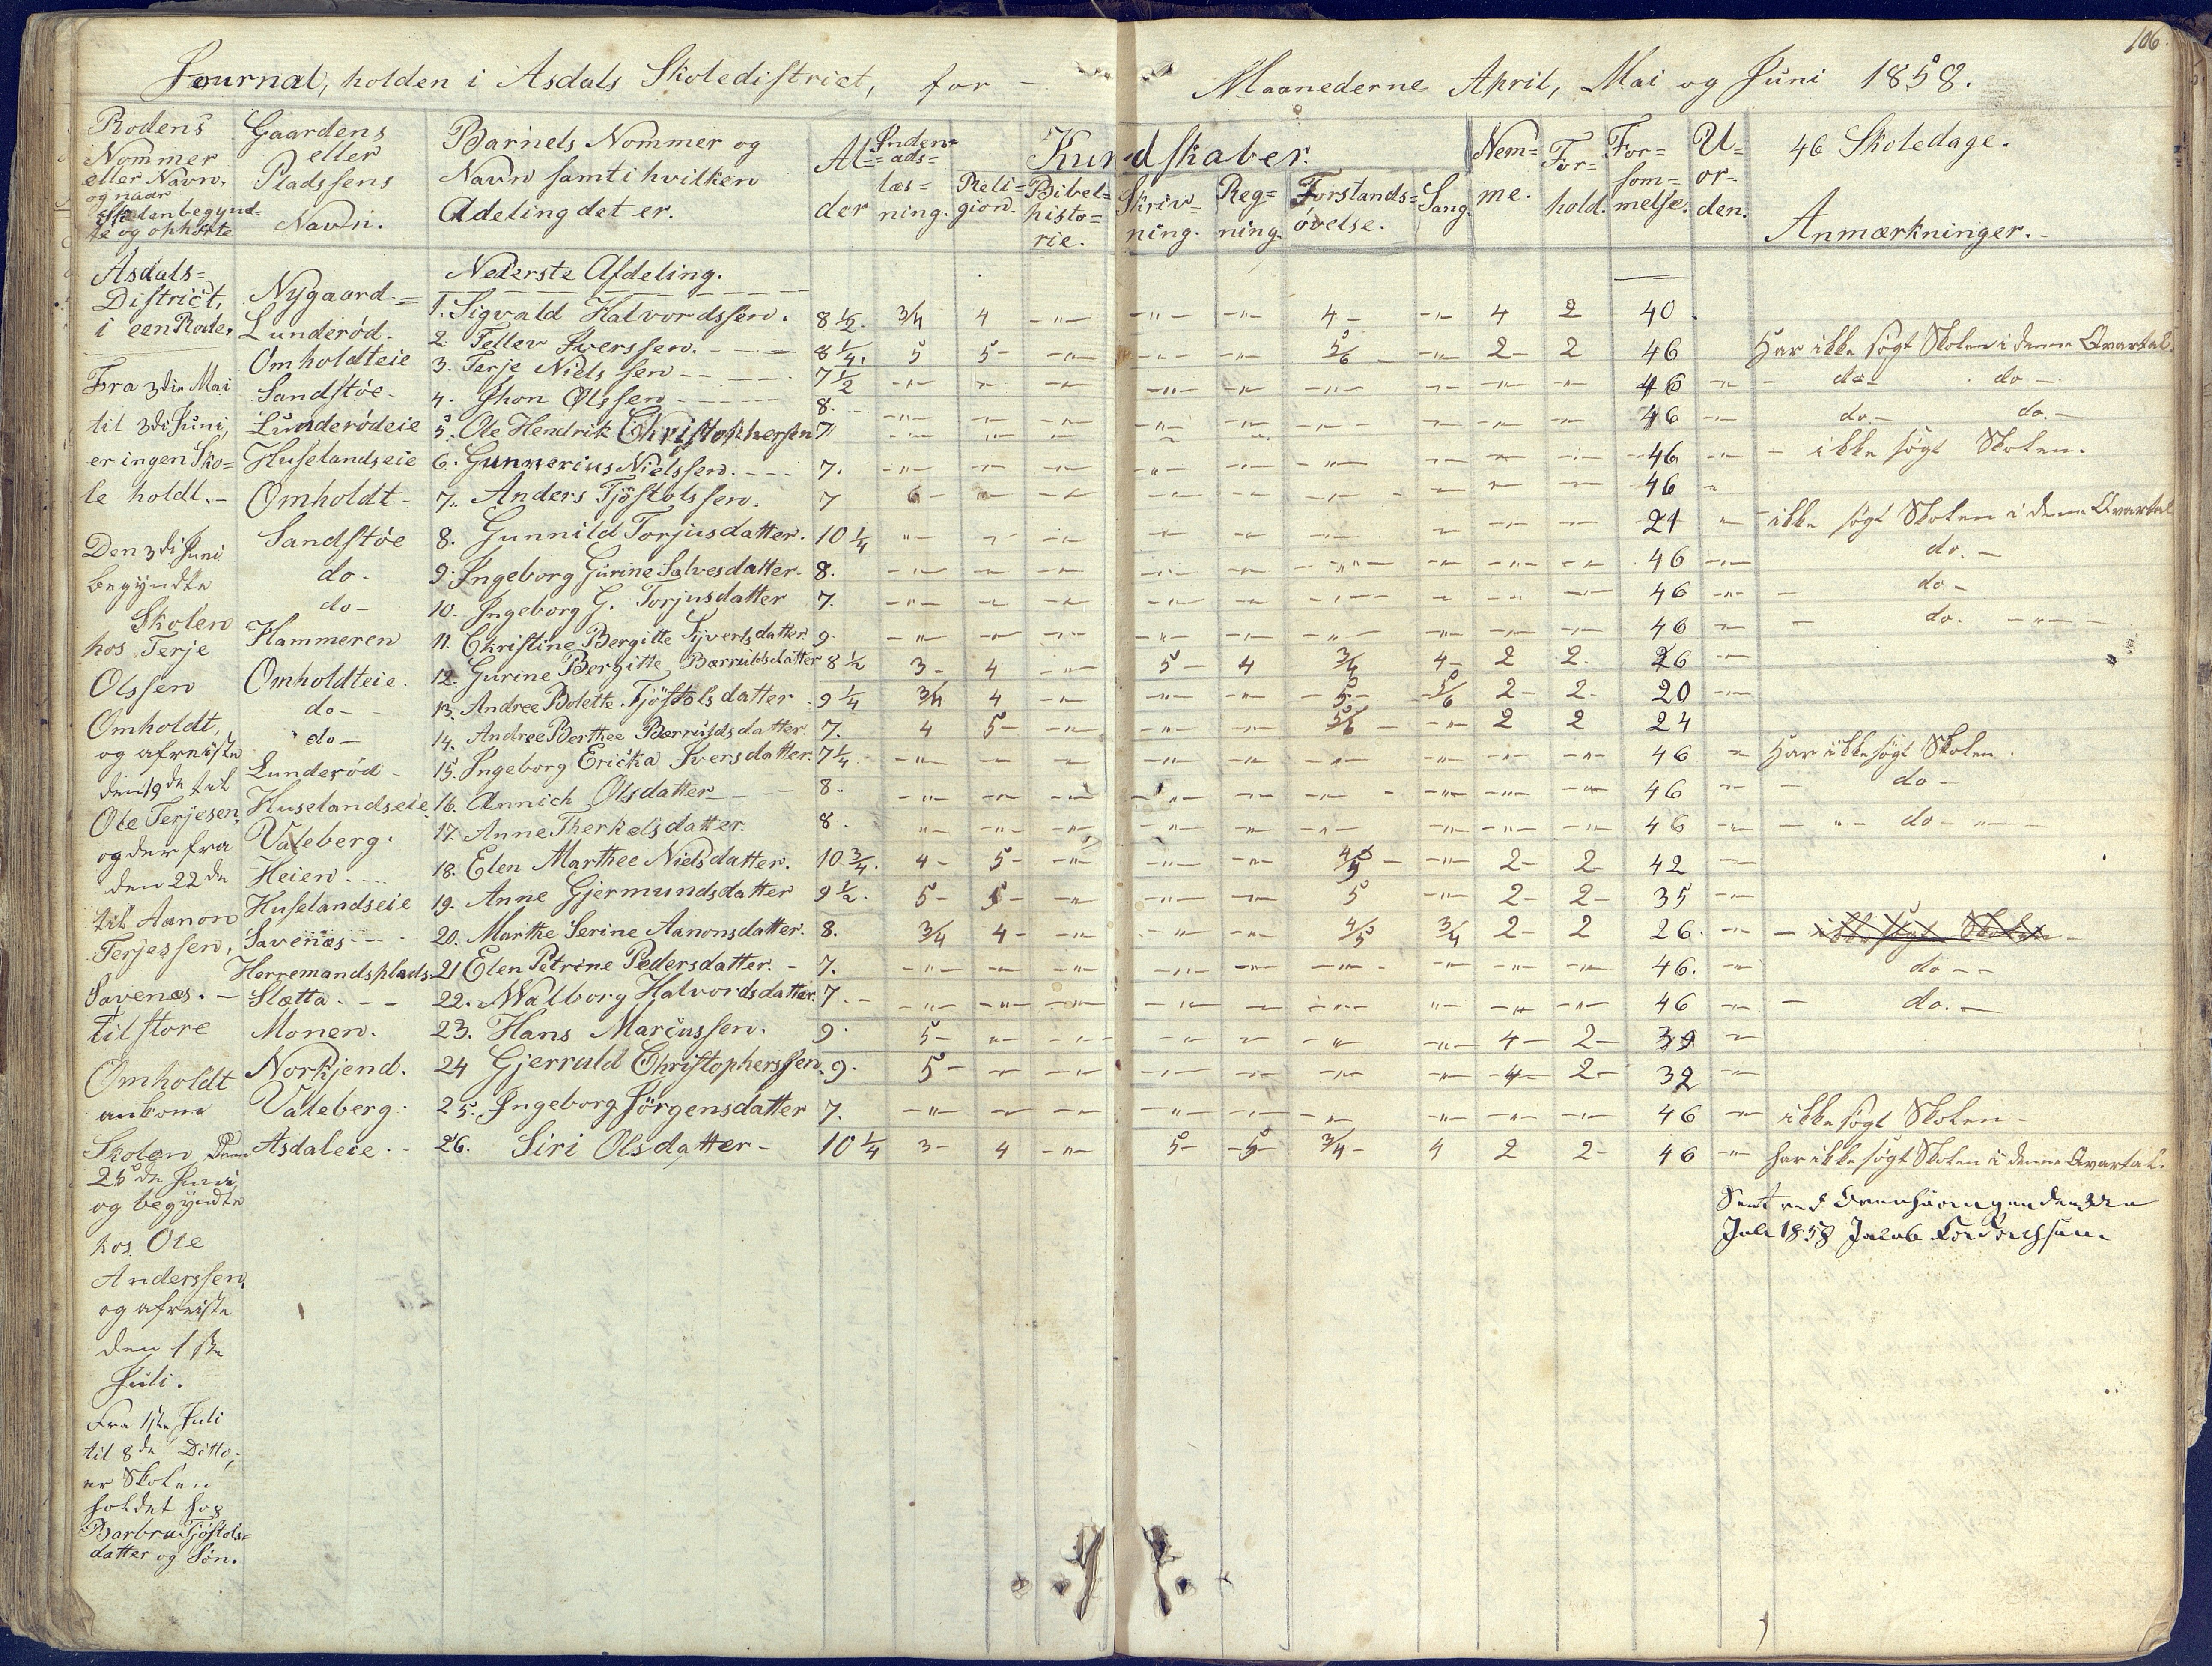 106.
Journal, holden i Asdals Skoledistrict, for - Maanederne April, Mai og Juni 1858.
Rodens Nommer eller Navn, og naar Skolen begyndte og ophørte
Gaardens eller Pladssens Navn.
Barnets Nommer og Navn samt i hvilken Adeling det er.
Alder
Indenadslæsning.
Kundskaber.
Religion.
Bibelhistorie.
Skrivning.
Regning.
Forstandsøvelse.
Sang.
Nemme.
Forhold.
Forsommelse.
Uorden.
46 Skoledage.
Anmærkninger.
Nederste Afdeling.
Nygaard. 1. Sigvald Halvordssen. 8 1/2. 3/4 4 -"- -"- -"- 4 - -"- 4 2 40
Lunderød. 2. Tellev Iverssen. 8 1/4. 5 5 - -"- -"- -"- 5/6 - -"- 2 - 2 46 Har ikke søgt Skolen i denne Qvartal.
Omholdteie 3. Terje Nielssen 7 1/2 46 do - do -
Sandstøe - 4. Jhon Olssen 8. 46 do - do. -
Lunderødeie 5. Ole Hendrik Christophersen 7 46 - ikke søgt Skolen.
Huselandseie 6. Gunnerius Nielssen. 7. 46
Omholdt - 7. Anders Tjöstolssen. 7 6 - 21 - ikke søgt Skolen i denne Qvartal
Sandstøe 8. Gunnild Torjusdatter. 10 1/4 46 do. -
do. 9. Ingeborg Gurine Salvesdatter 8. 46 do -
do - 10. Ingeborg G. Torjusdatter 7. 46 do.
Hammeren 11. Christine Bergitte Syvertsdatter 9. 3 - 4 -"- 5 - 4 3/4 4 - 2 2 - 26
Omholdteie. 12. Gurine Bergitte Bærruldsdatter 8 1/2 3/4 4 5 - 5/6 2 - 2 - 20
do - 13. Andree Bolette Tjöstolsdatter 9 1/4 4 5 - 5/6 2 2 24
do - 14. Andree Berthee Bærruldsdatter 7. 46 Har ikke søgt Skolen.
Lunderød - 15. Ingeborg Ericka Iversdatter. 7 1/4 46 do -
Huselandseie. 16. Annich Olsdatter 8. 46 do -
Valeberg. 17. Anne Therkelsdatter. 8.
Heien. 18. Elen Marthee Nielsdatter. 10 3/4. 4 - 5 - 4/5 2 - 2 - 42
Huselandseie 19. Anne Gjermundsdatter 9 1/2. 5 - 5 - 5 2 - 2 - 35
Savenæs - 20. Marthe Serine Aanonsdatter. 8. 3/4 4 - 4/5 3/4 2 - 2 26. - ikke søgt Skolen -
Herremandsplads 21 Elen Petrine Pedersdatter. - 7. 46. do - -
Slætta. - - 22. Walborg Halvordsdatter. 7. 46 do. -
Monen. 23. Hans Marcussen. 9. 5 - 4 - 2 - 39
Norkjend. 24 Gjerruld Christopherssen 9. 5 - 4 - 2 - 32
Valeberg. 25. Ingeborg Jörgensdatter 7. 46 ikke søgt Skolen -
Asdaleie. - 26. Siri Olsdatter - 10 1/4 3 - 4 -"- 5 - 5 - 3/4 - 4 2 2 - 46 har ikke søgt Skolen i denne Qvartal.
Juli 1858 Jacob
Asdals-
District,
i een Rode.
Fra 3die Mai
til 3di Juni,
er ingen Sko=
le holdt. -
Den 3di Juni
begyndte
Skolen
hos Terje
Olssen
Omholdt,
og afreiste
den 19de til
Ole Terjesen,
og der fra
den 22de
til Aanon
Terjessen,
Savenæs. -
til store
Omholdt
ankom
Skolen den
25de Juni
og begyndte
hos Ole
Anderssen,
og afreiste
den 1ste
Juli.
Fra 1ste Juli
til 8de Ditto,
er Skolen
holdet hos
Barbru Tjöstols=
datter og Sön.